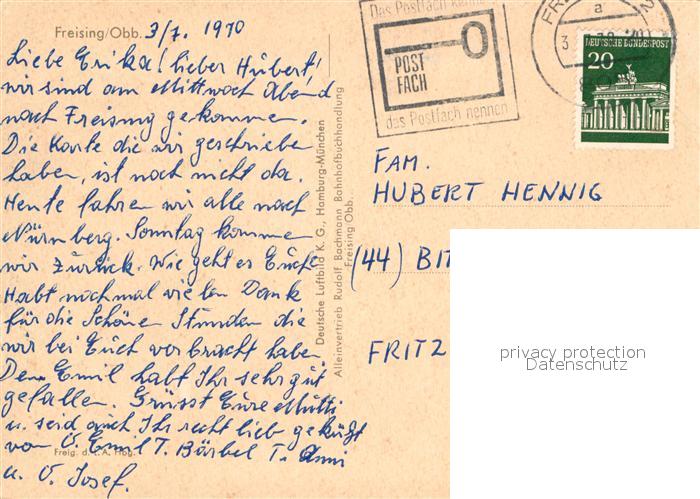 Freising/Obb. 3/7. 1970
Liebe Erika! lieber Hubert!
wir sind am Mittwoch Abend
nach Freising gekomme.
Die Karte die wir geschriebe
haben, ist noch nicht da.
Heute fahren wir alle nach
Nürnberg. Sonntag komme
wir Zurück. Wie geht es Euch?
Habt nochmal vielen Dank
für die Schöne Stunden die
wir bei Euch verbracht habe.
Den Emil habt Ihr sehr gut
gefallen. Grüsst Eure Mutti
u. seid auch Ihr recht lieb geküßt
von O. Emil T. Bärbel T. Anni
u. O. Josef.
Freig. d. L.A. Hbg.
Deutsche Luftbild K. G., Hamburg-München
Alleinvertrieb Rudolf Bachmann Bahnhofbuchhandlung
Freising Obb.
Das Postfach
POST
FACH
das Postfach nennen
a
3.
DEUTSCHE BUNDESPOST
20
FAM.
HUBERT HENNIG
(44) BIT
FRITZ
privacy protection
Datenschutz